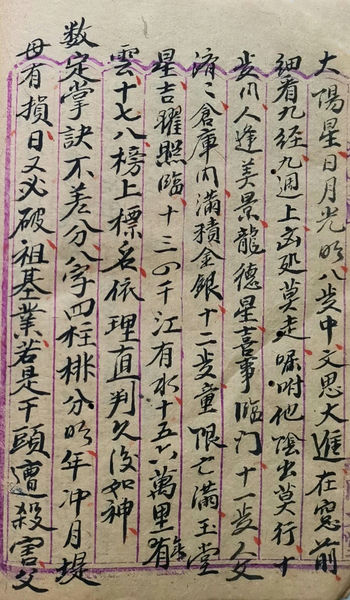 太陽星日月光明八岁中文思大進在窓前
細看九经九週上凶処莫走嘱咐他陰出莫行十
岁川人逢美景龍德星喜事臨门十一岁人父
濟〻倉庫内满積金銀十二岁童限亡满玉堂
星吉耀照臨十三四千江有水十五六萬里無
雲十七八榜上標名依理直判久後如神
数定掌訣不差分八字四柱排分明年冲月堤
母有損日又必破祖基業若是干頭遭殺害父